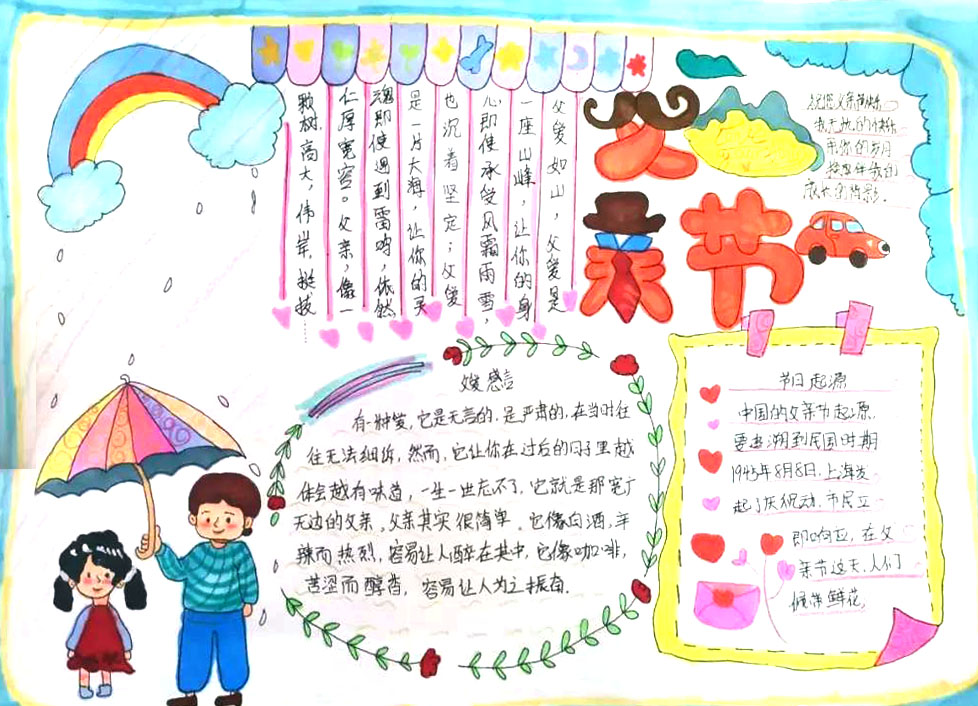 父亲节
父爱如山，父爱是
一座山峰，让你的身
心即使承受风霜雨雪，
也沉着坚定；父爱
是一片大海，让你的灵
魂即使遇到雷鸣，依然
仁厚宽容。父亲，像一
颗树，高大，伟岸，挺拔
祝您父亲节快乐
我无忧的快乐
你的岁月
成长的背影
感言
有一种爱，它是无言的，是严肃的，在当时往
往无法细诉，然而，它让你在过后的日子里越
体会越有味道，一生一世忘不了，它就是那宽广
无边的父亲。父亲其实很简单。它像白酒，辛
辣而热烈，容易让人醉在其中，它像咖啡，
苦涩而醇香，容易让人为之振奋.
节日起源
中国的父亲节起源，
要追溯到民国时期
1945年8月8日，上海发
起了庆祝动，市民立
即响应，在父
亲节这天，人们
佩带鲜花，